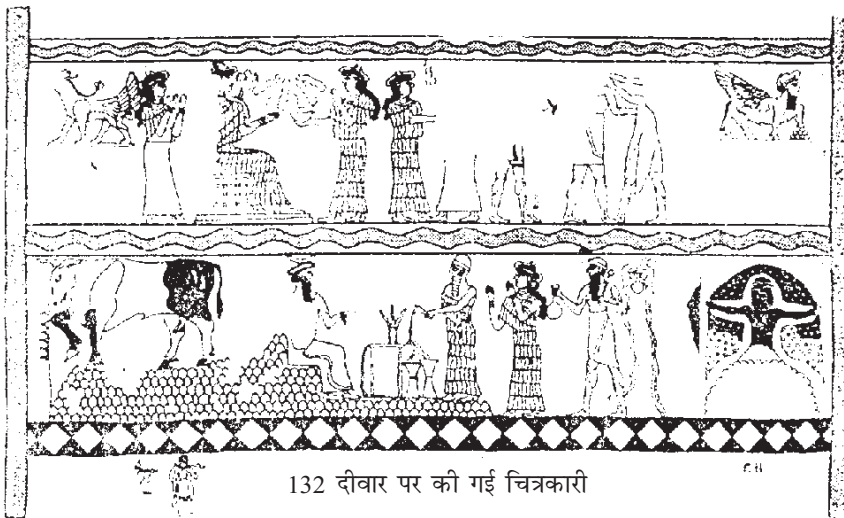 132 दीवार पर की गई चित्रकारी